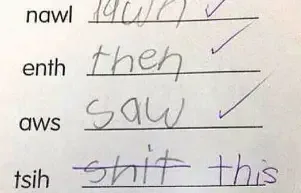 nawl lawn
enth then
aws saw
tsih shit this